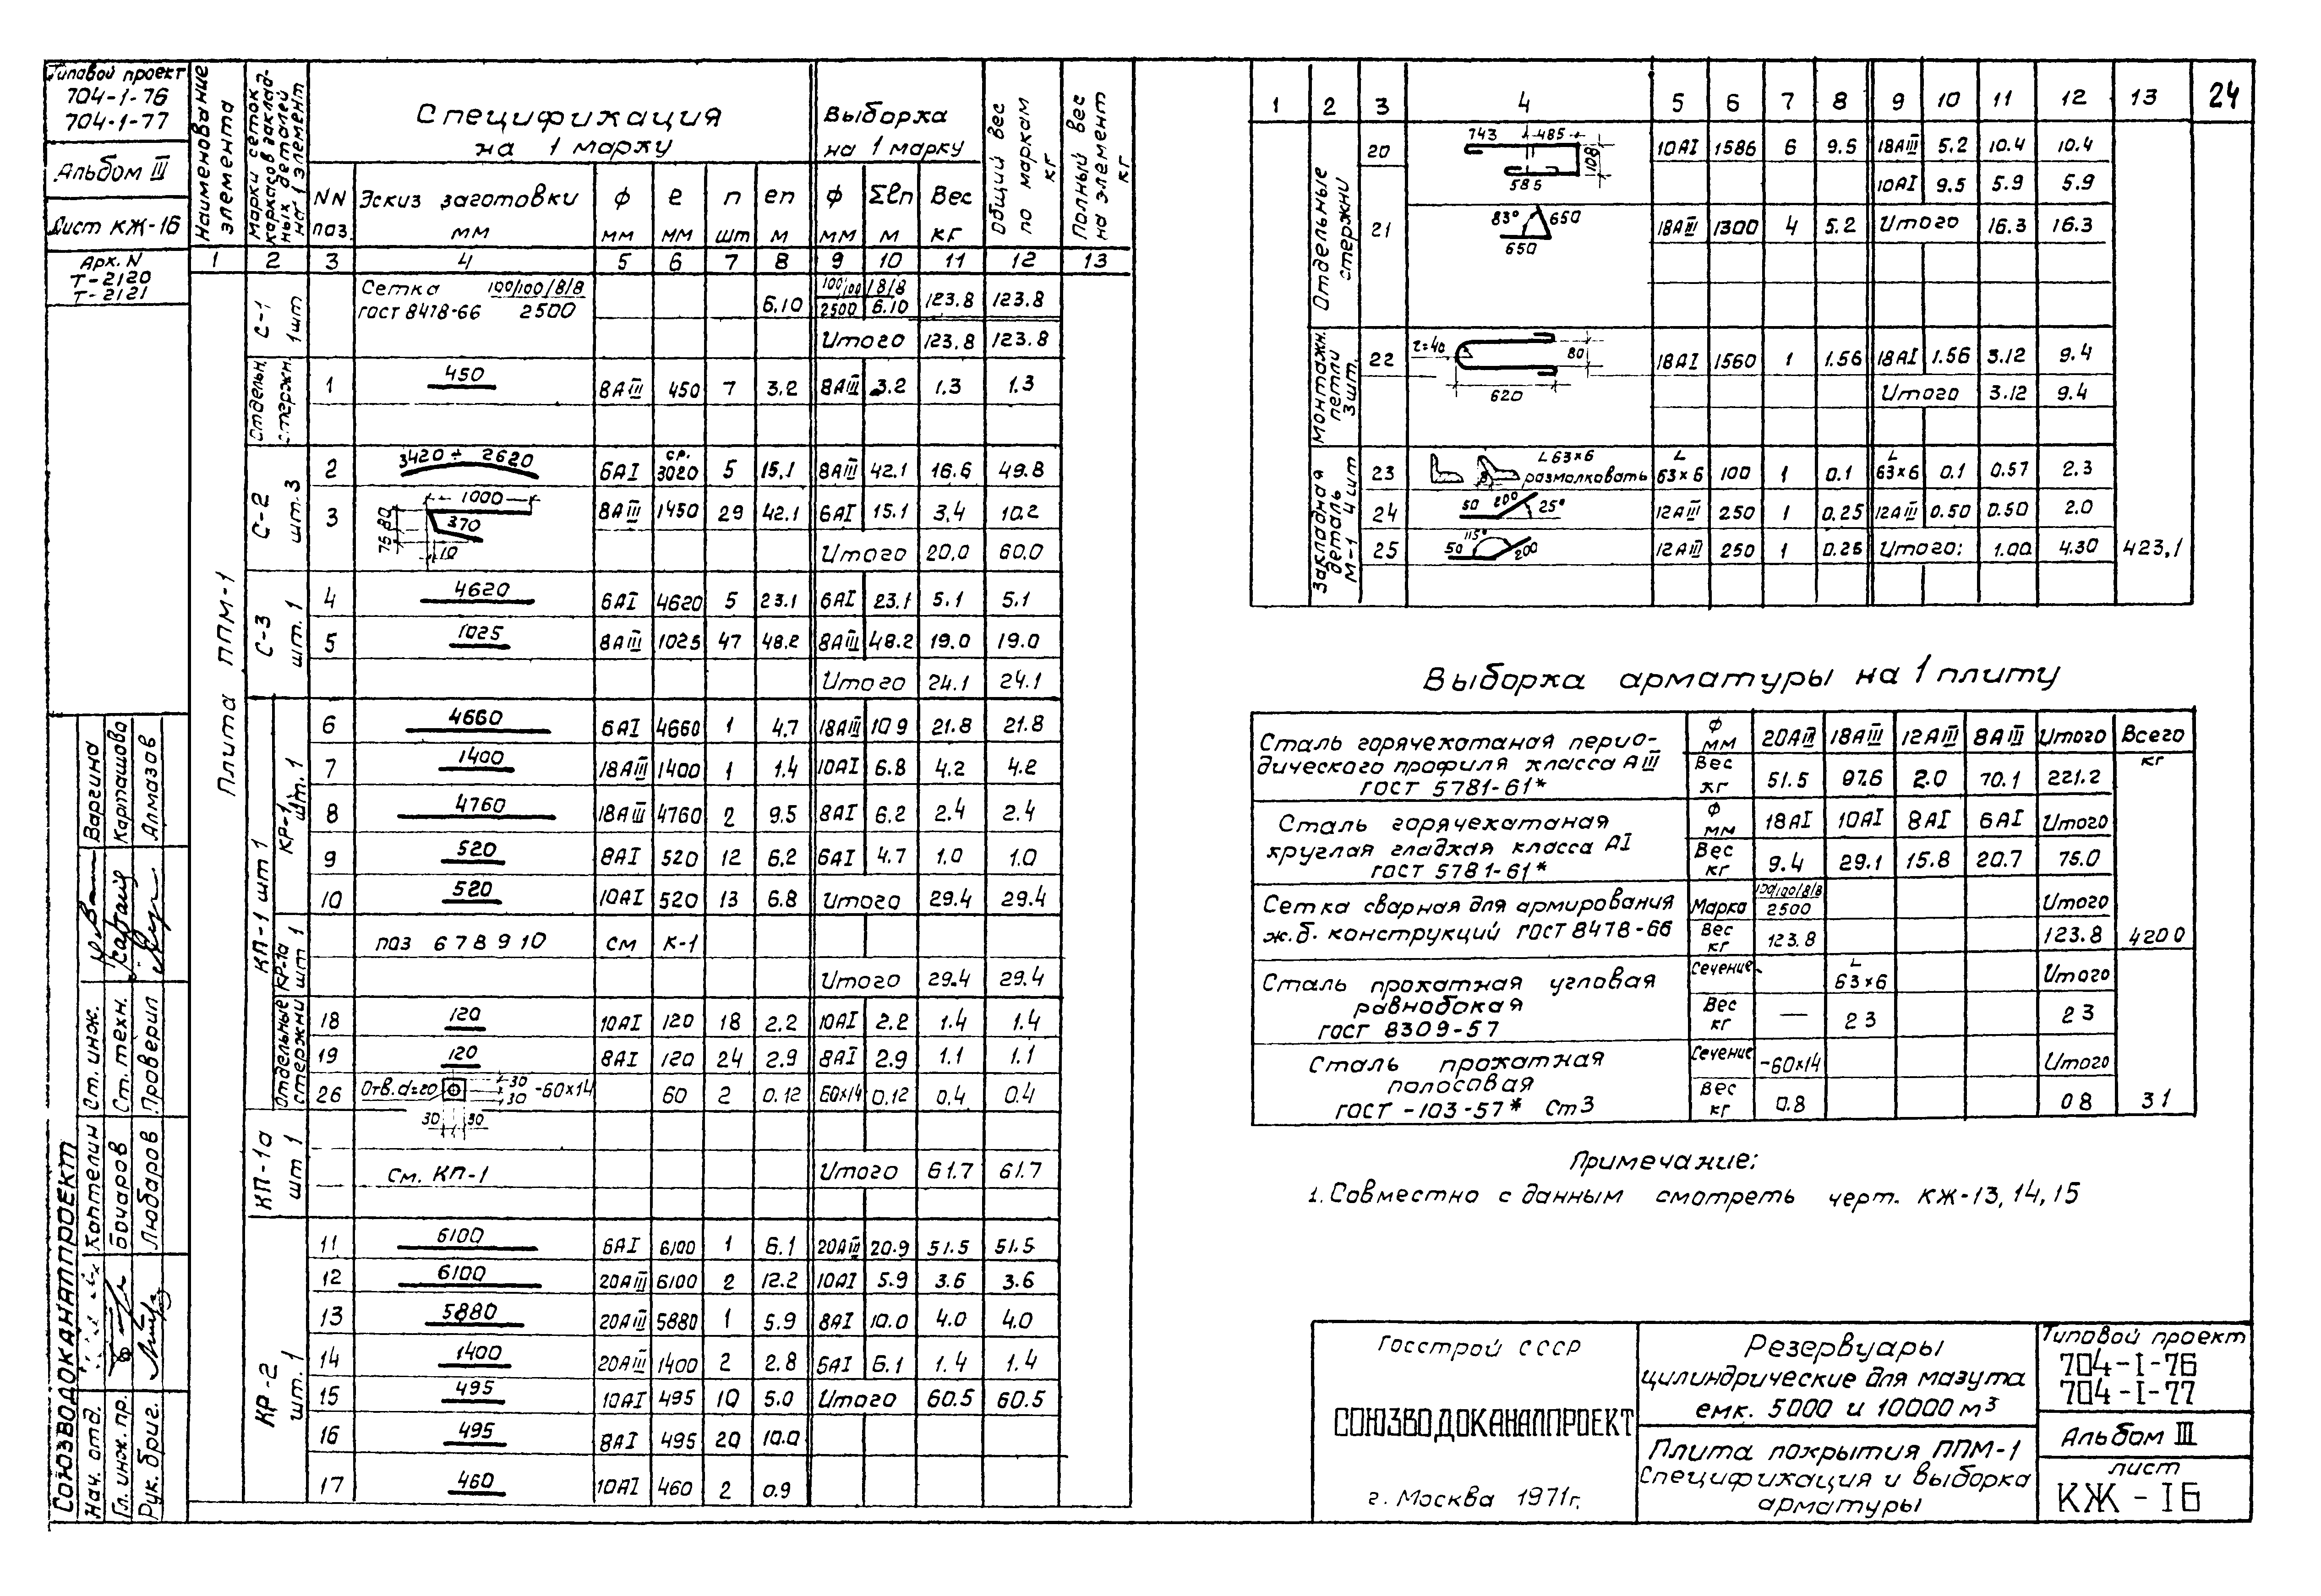 Типовой проект
704-1-76
704-1-77
Альбом III
Лист КЖ-16
Арх. N
Т-2120
Т-2121
Наименование элемента
Марки сеток каркасов заклад-ных деталей на 1 элемент
Спецификация
на 1 марку
Выборка
на 1 марку
Общий вес по маркам кг
Полный вес на элемент кг
NN поз. Эскиз заготовки мм ф мм ℓ мм n шт ℓn м ф мм Σℓn м Вес кг
1 2 3 4 5 6 7 8 9 10 11 12 13
Плита ППМ-1
С-1 1шт
Сетка 100/100/8/8
ГОСТ 8478-66 2500 6.10 100/100/8/8 2500 6.10 123.8 123.8
Итого 123.8 123.8
Отдельн. стержн.
1 450 8АIII 450 7 3.2 8АIII 3.2 1.3 1.3
С-2 шт.3
2 3420÷2620 6АI ср. 3020 5 15.1 8АIII 42.1 16.6 49.8
3 1000 370 75.80 10 8АIII 1450 29 42.1 6АI 15.1 3.4 10.2
Итого 20.0 60.0
С-3 шт. 1
4 4620 6АI 4620 5 23.1 6АI 23.1 5.1 5.1
5 1025 8АIII 1025 47 48.2 8АIII 48.2 19.0 19.0
Итого 24.1 24.1
КП-1 шт 1
КР-1 шт. 1
6 4660 6АI 4660 1 4.7 18АIII 10 9 21.8 21.8
7 1400 18АIII 1400 1 1.4 10АI 6.8 4.2 4.2
8 4760 18АIII 4760 2 9.5 8АI 6.2 2.4 2.4
9 520 8АI 520 12 6.2 6АI 4.7 1.0 1.0
10 520 10АI 520 13 6.8 Итого 29.4 29.4
КР-1а шт 1
поз 6 7 8 9 10 см К-1
Итого 29.4 29.4
Отдельные стержни
18 120 10АI 120 18 2.2 10АI 2.2 1.4 1.4
19 120 8АI 120 24 2.9 8АI 2.9 1.1 1.1
26 Отв. d=20 30 30 -60×14 30 30 60 2 0.12 60×14 0.12 0.4 0.4
КП-1а шт 1
См. КП-1 Итого 61.7 61.7
КР-2 шт. 1
11 6100 6АI 6100 1 6.1 20АIII 20.9 51.5 51.5
12 6100 20АIII 6100 2 12.2 10АI 5.9 3.6 3.6
13 5880 20АIII 5880 1 5.9 8АI 10.0 4.0 4.0
14 1400 20АIII 1400 2 2.8 6АI 6.1 1.4 1.4
15 495 10АI 495 10 5.0 Итого 60.5 60.5
16 495 8АI 495 20 10.0
17 460 10АI 460 2 0.9
СОЮЗВОДОКАНАЛПРОЕКТ
Нач. отд. Коптелин Ст. инж. Варгина
Гл. инж. пр. Бочаров Ст. техн. Карташова
Рук. бриг. Любаров Проверил Алмазов
24
1 2 3 4 5 6 7 8 9 10 11 12 13
Отдельные стержни
20 743 485 108 585 10АI 1586 6 9.5 18АIII 5.2 10.4 10.4
10АI 9.5 5.9 5.9
21 83° 650 650 18АIII 1300 4 5.2 Итого 16.3 16.3
Монтажн. петли 3шт.
22 r=40 80 620 18АI 1560 1 1.56 18АI 1.56 3.12 9.4
Итого 3.12 9.4
Закладная деталь М-1 4 шт
23 L63×6 размалковать L 63×6 100 1 0.1 L 63×6 0.1 0.57 2.3
24 50 200 25° 12АIII 250 1 0.25 12АIII 0.50 0.50 2.0
25 115° 50 200 12АIII 250 1 0.25 Итого: 1.00 4.30 423,1
Выборка арматуры на 1 плиту
Сталь горячекатаная перио-
дического профиля класса АIII
ГОСТ 5781-61*
ф мм 20АIII 18АIII 12АIII 8АIII Итого Всего кг
Вес кг 51.5 97.6 2.0 70.1 221.2
Сталь горячекатаная
круглая гладкая класса АI
ГОСТ 5781-61*
ф мм 18АI 10АI 8АI 6АI Итого
Вес кг 9.4 29.1 15.8 20.7 75.0
Сетка сварная для армирования
ж.б. конструкций ГОСТ 8478-66
Марка 100/100/8/8 2500 Итого
Вес кг 123.8 123.8 420 0
Сталь прокатная угловая
равнобокая
ГОСТ 8309-57
Сечение L 63×6 Итого
Вес кг — 2 3 2 3
Сталь прокатная
полосовая
ГОСТ -103-57* Ст3
Сечение -60×14 Итого
Вес кг 0.8 0 8 3 1
Примечание:
1. Совместно с данным смотреть черт. КЖ-13, 14, 15
Госстрой СССР
СОЮЗВОДОКАНАЛПРОЕКТ
г. Москва 1971г.
Резервуары
цилиндрические для мазута
емк. 5000 и 10000 м³
Плита покрытия ППМ-1
Спецификация и выборка
арматуры
Типовой проект
704-I-76
704-I-77
Альбом III
лист
КЖ-16